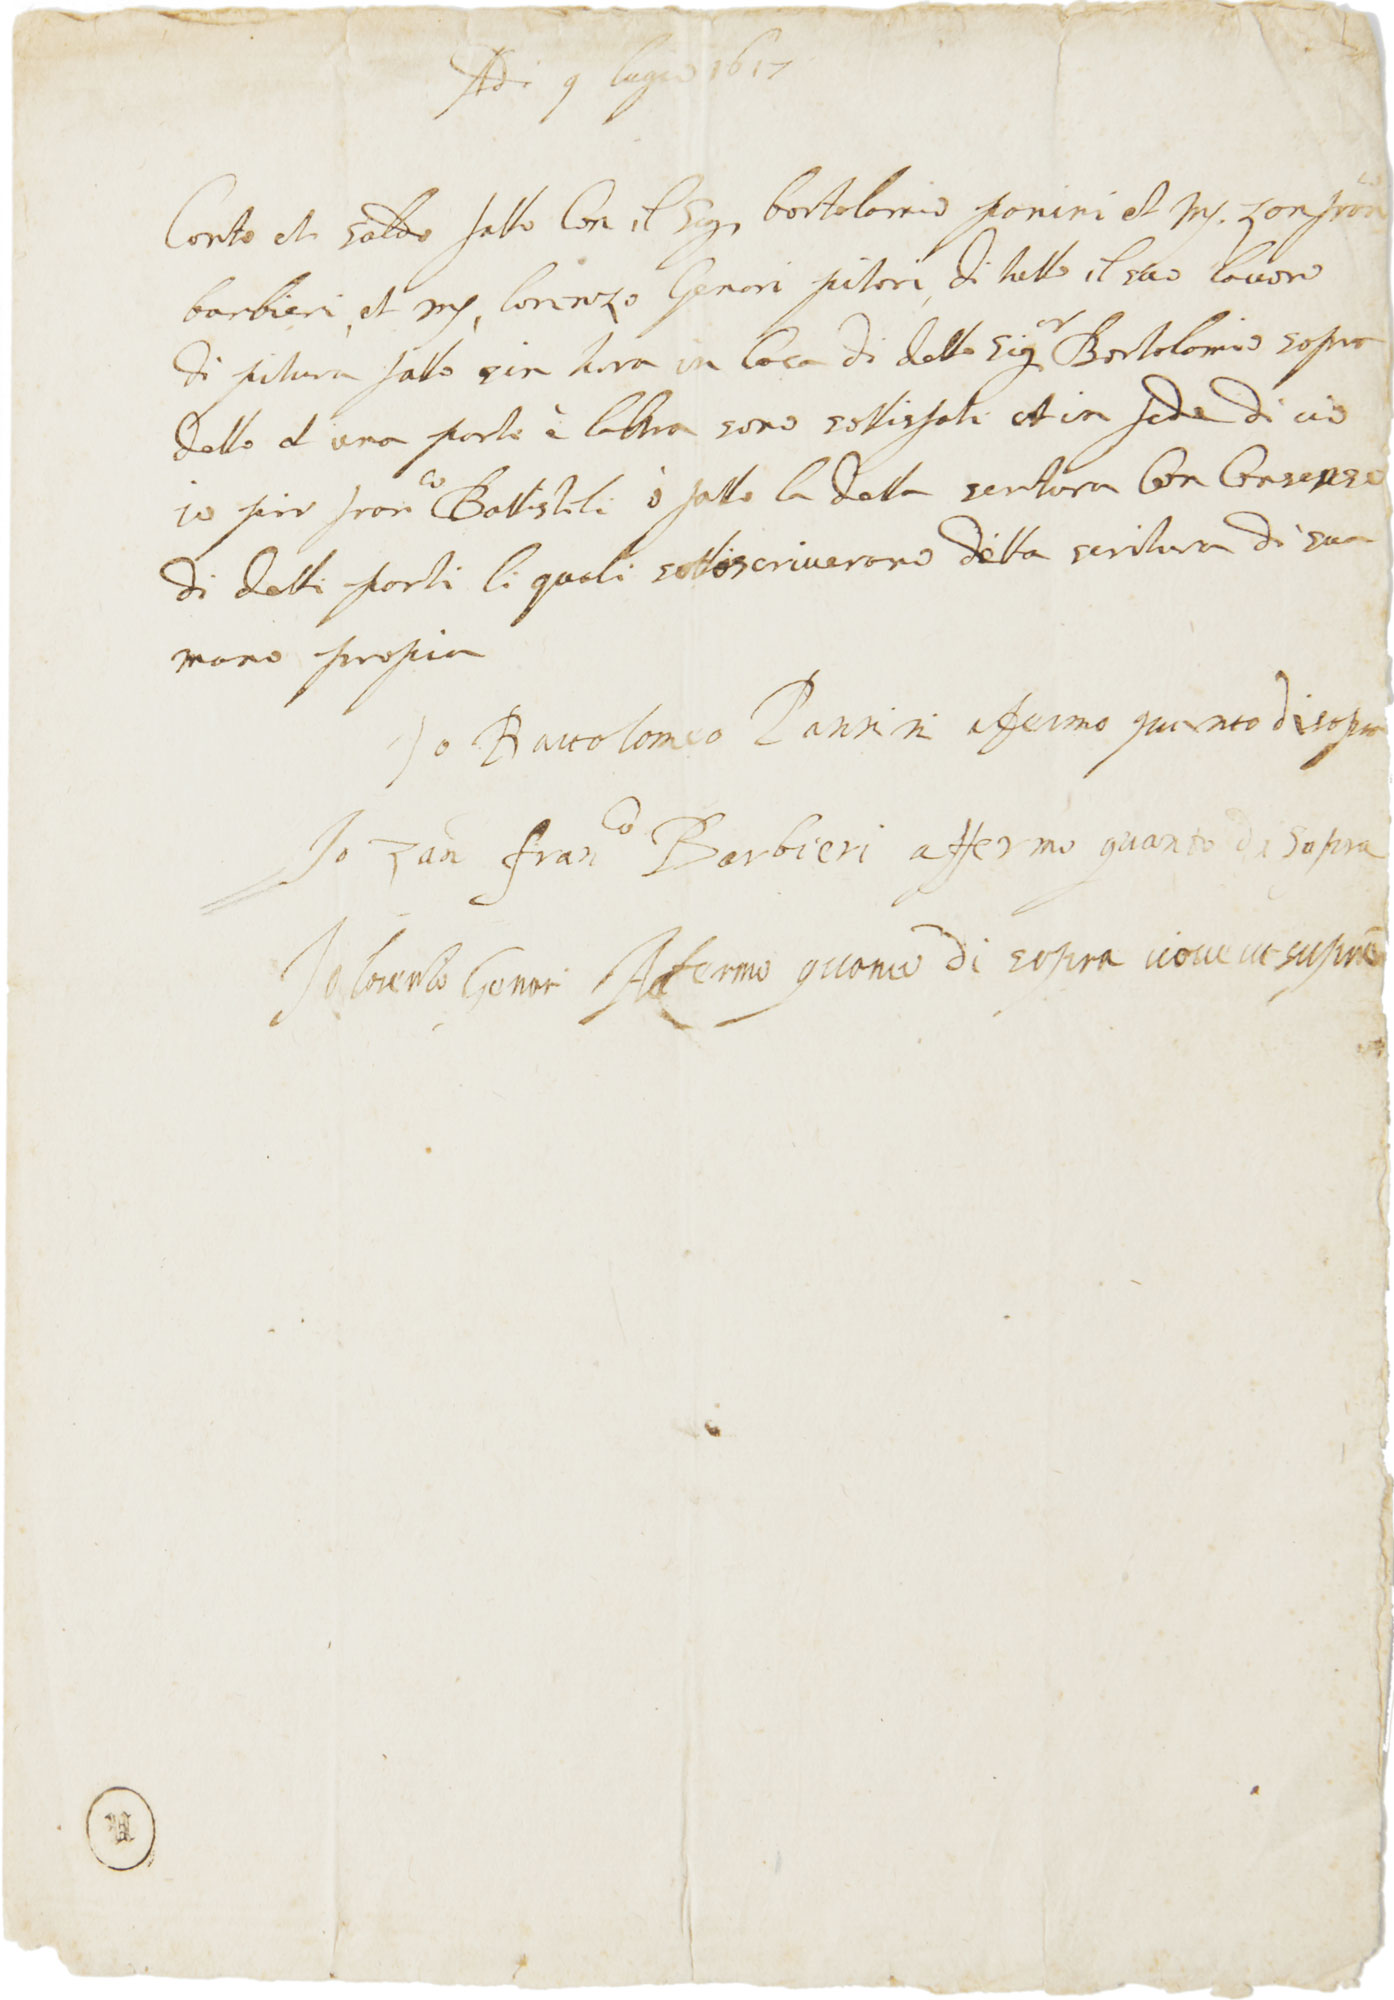 Adi 9 luguo 1617
Conto et saldo fatto Con il Sig. bortolomio panini et mr. zan franco
barbieri, et mr. lorenzo Genari pitori, di tutto il suo lavoro
di pitura fatto sin hora in Casa di detto Sigr Bortolomio sopra
detto et una parte è laltra sono sottisfati et in fede di ciò
io pir franco Battistili ò fatto la detta scritura Con Consenso
di detti parti li quali sottoscriverano detta scritura di sua
mano propia
Io Bartolomeo Pannini affermo quanto di sopra
Io zan franco Barbieri affermo quanto di sopra
Io lorenzo Genari Afermo quanto di sopra